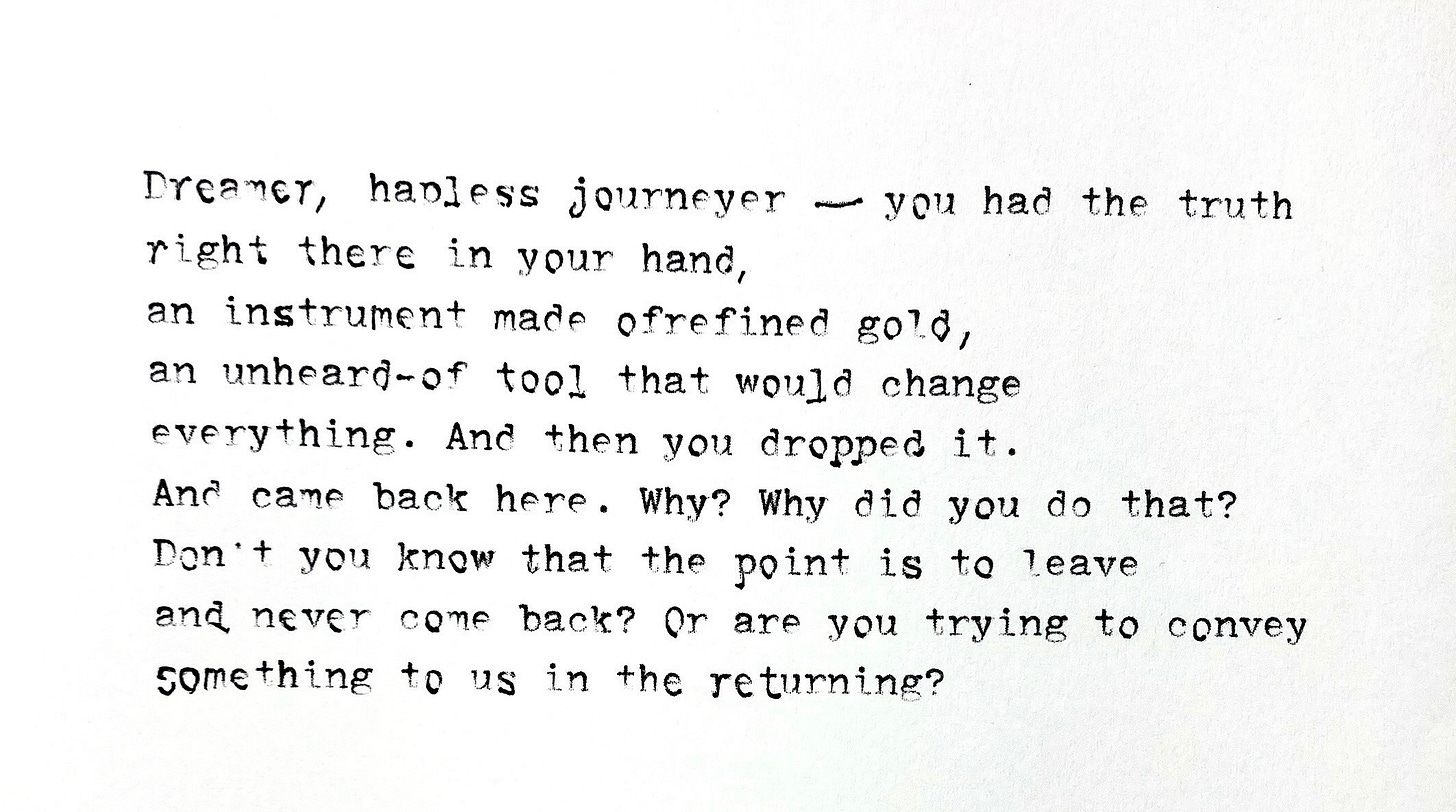 Dreamer, hapless journeyer — you had the truth
right there in your hand,
an instrument made ofrefined gold,
an unheard-of tool that would change
everything. And then you dropped it.
And came back here. Why? Why did you do that?
Don't you know that the point is to leave
and never come back? Or are you trying to convey
something to us in the returning?